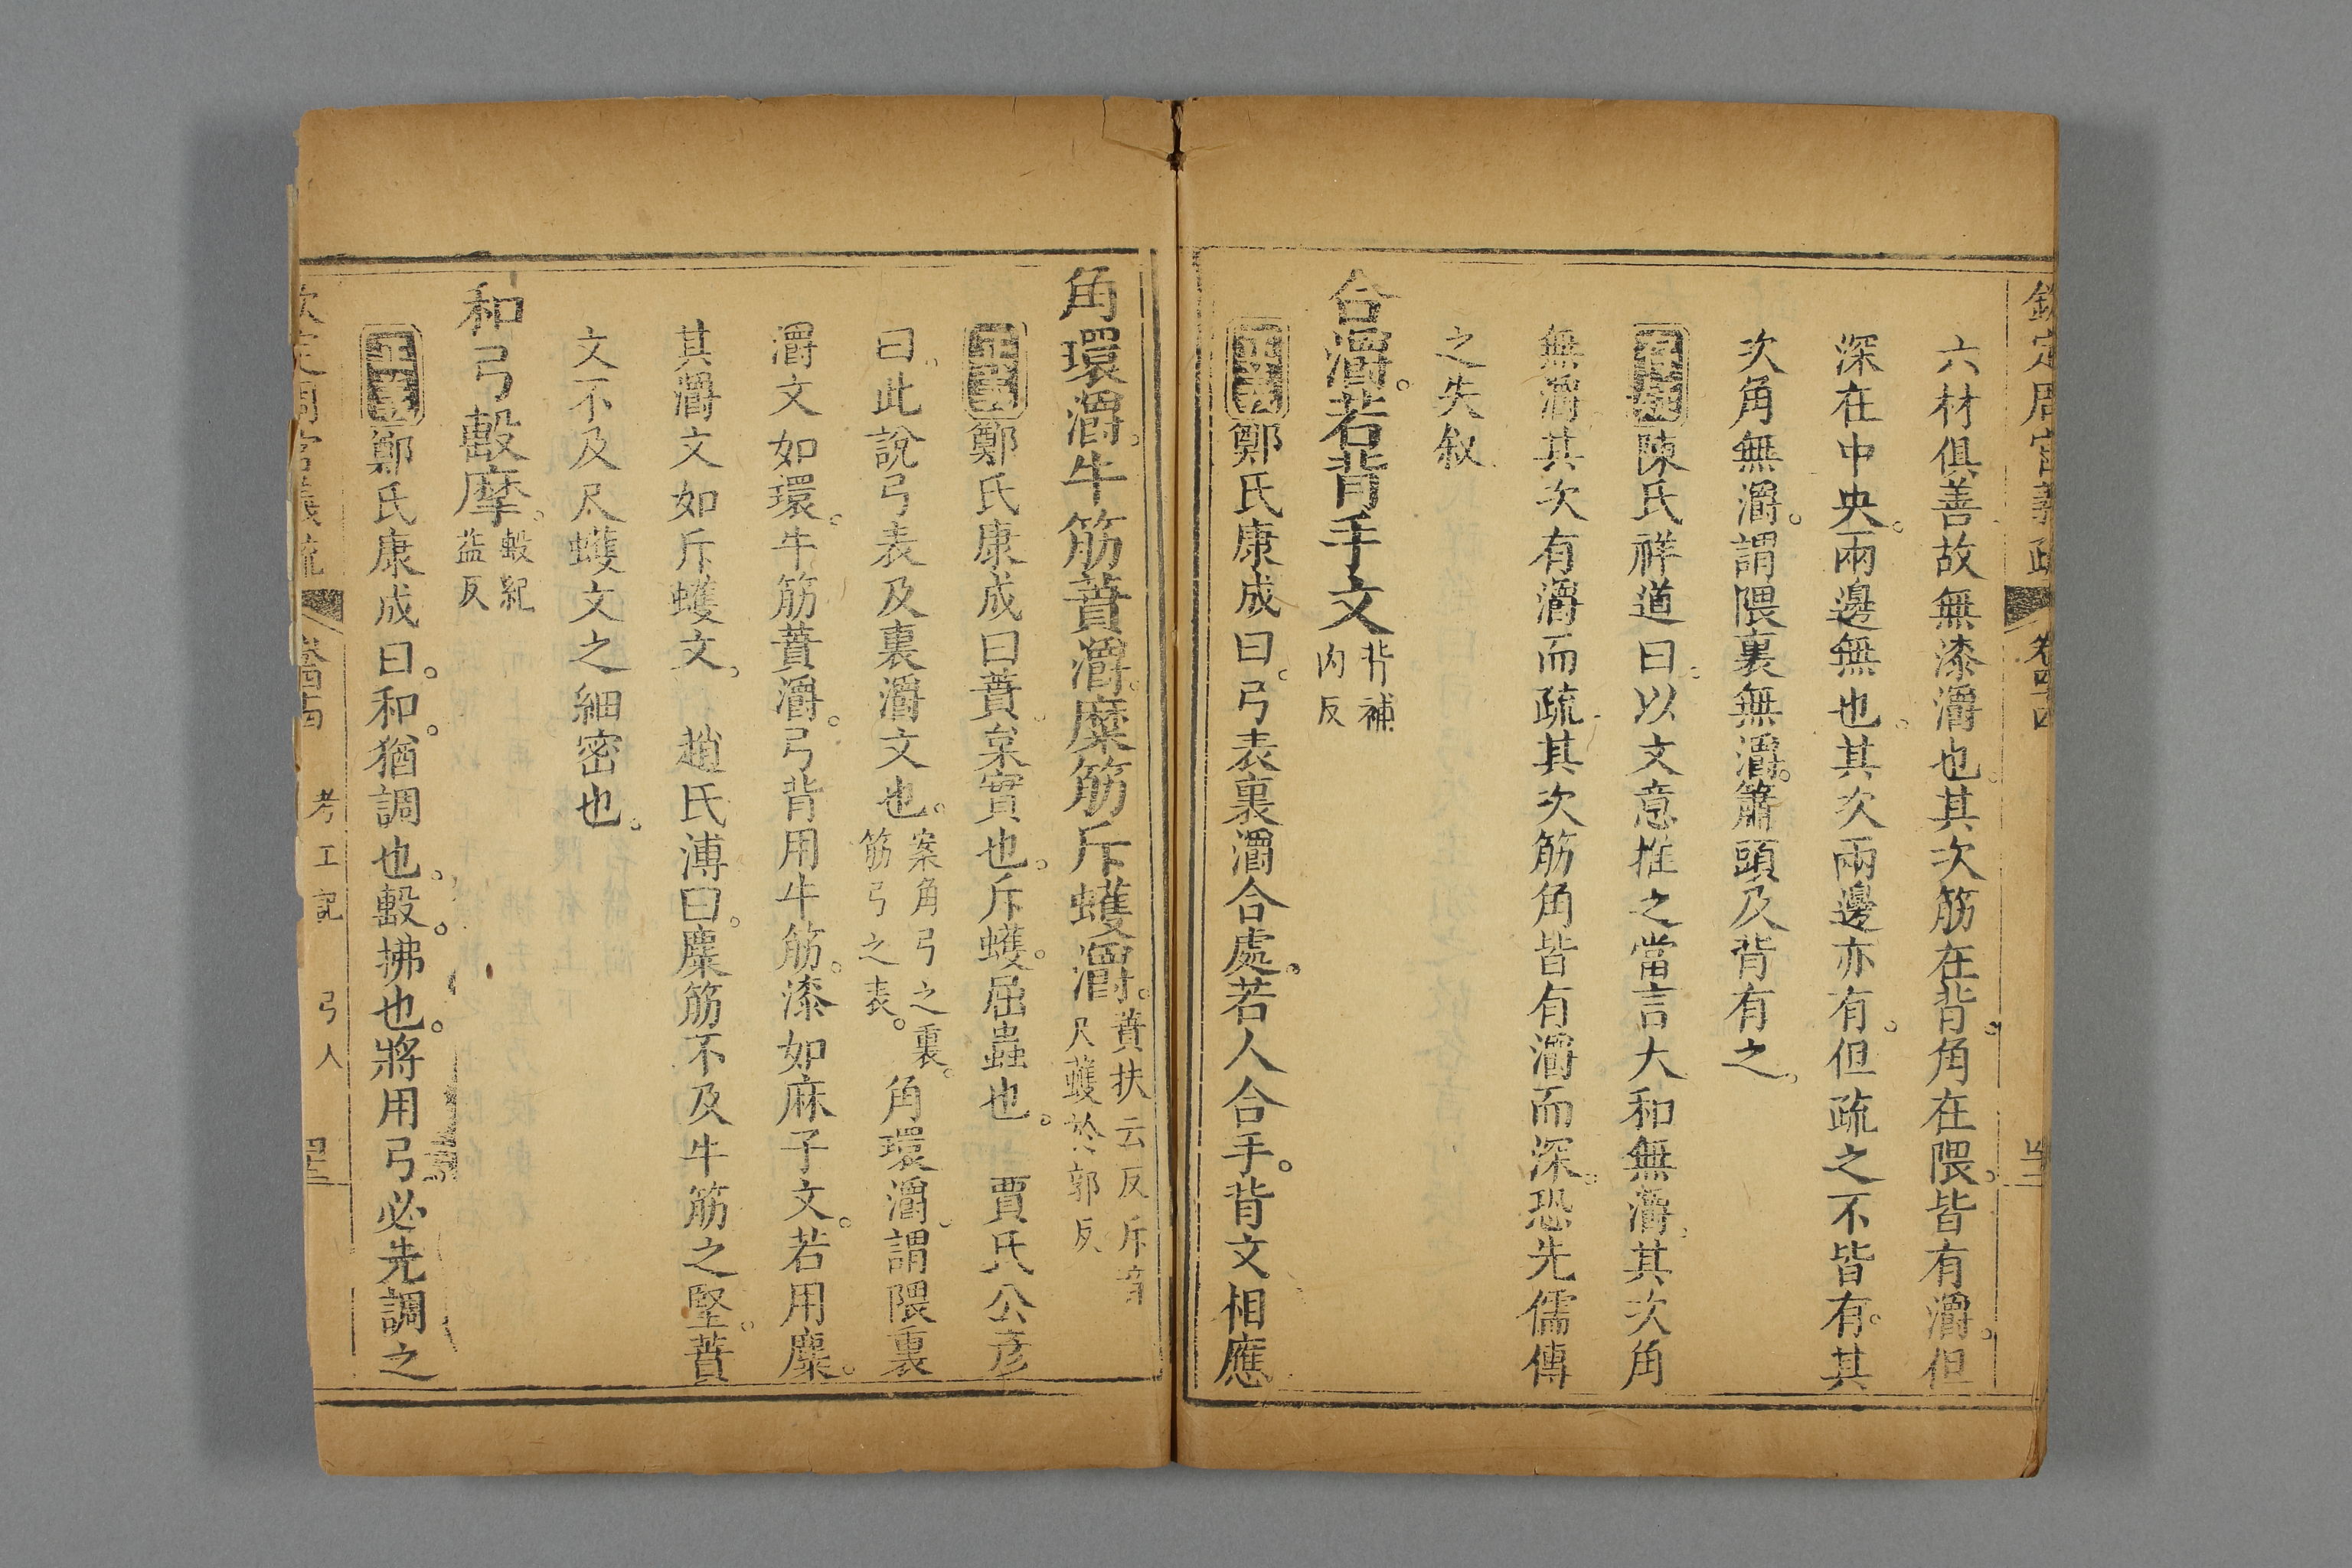 欽定周官義疏 卷四十四
六材俱善故無漆灂也。其次筋在背。角在隈。皆有灂。但
深在中央。兩邊無也。其次兩邊亦有。但疏之不皆有。其
次角無灂。謂隈裏無灂。簫頭及背有之。
陳氏祥道曰。以文意推之當言大和無灂。其次角
無灂其次有灂而疏其次筋角皆有灂而深。恐先儒傳
之失叙
合灂。若背手文背補內反
正義鄭氏康成曰。弓表裏灂合處。若人合手。背文相應
角環灂。牛筋蕡灂。麋筋斥蠖灂。蕡扶云反斥音尺蠖於郭反
正義鄭氏康成曰蕡。枲實也。斥蠖。屈蟲也。 賈氏公彥
曰。此說弓表及裏灂文也。案角弓之裏。筋弓之表。角環灂。謂隈裏
灂文如環。牛筋蕡灂。弓背用牛筋。漆如麻子文。若用麋。
其灂文如斥蠖文。 趙氏溥曰。麋筋不及牛筋之堅。蕡
文不及尺蠖文之細密也。
和弓毄摩。毄紀益反
正義鄭氏康成曰。和。猶調也。毄。拂也。將用弓必先調之
欽定周官義疏 卷四十四 考工記 弓人